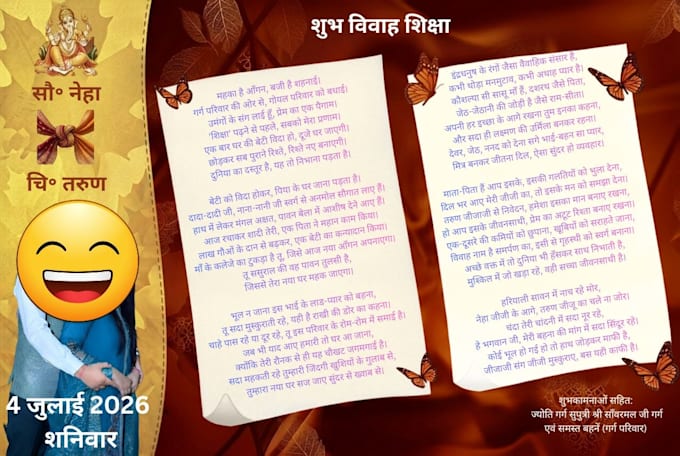 शुभ विवाह शिक्षा
सौ॰ नेहा
चि॰ तरुण
4 जुलाई 2026
शनिवार
महका है आँगन, बजी है शहनाई।
गर्ग परिवार की ओर से, गोयल परिवार को बधाई।
उमंगों के संग लाई हूँ, प्रेम का एक पैगाम।
'शिक्षा' पढ़ने से पहले, सबको मेरा प्रणाम।
एक बार घर की बेटी विदा हो, दूजे घर जाएगी।
छोड़कर सब पुराने रिश्ते, रिश्ते नए बनाएगी।
दुनिया का दस्तूर है, यह तो निभाना पड़ता है।
बेटी को विदा होकर, पिया के घर जाना पड़ता है।
दादा-दादी जी, नाना-नानी जी स्वर्ग से अनमोल सौगात लाए हैं।
हाथ में लेकर मंगल अक्षत, पावन बेला में आशीष देने आए हैं।
आज रचाकर शादी तेरी, एक पिता ने महान काम किया।
लाख गौओं के दान से बढ़कर, एक बेटी का कन्यादान किया।
माँ के कलेजे का टुकड़ा है तू, जिसे आज नया आँगन अपनाएगा।
तू ससुराल की वह पावन तुलसी है,
जिससे तेरा नया घर महक जाएगा।
भूल न जाना इस भाई के लाड़-प्यार को बहना,
तू सदा मुस्कुराती रहे, यही है राखी की डोर का कहना।
चाहे पास रहे या दूर रहे, तू इस परिवार के रोम-रोम में समाई है।
जब भी याद आए हमारी तो घर आ जाना,
क्योंकि तेरी रौनक से ही यह चौखट जगमगाई है।
सदा महकती रहे तुम्हारी जिंदगी खुशियों के गुलाब से,
तुम्हारा नया घर सज जाए सुंदर से ख्वाब से।
इंद्रधनुष के रंगों जैसा वैवाहिक संसार है,
कभी थोड़ा मनमुटाव, कभी अथाह प्यार है।
कौशल्या सी सासू माँ हैं, दशरथ जैसे पिता,
जेठ-जेठानी की जोड़ी है जैसे राम-सीता।
अपनी हर इच्छा के आगे रखना तुम इनका कहना,
और सदा ही लक्ष्मण की उर्मिला बनकर रहना।
देवर, जेठ, ननद को देना सगे भाई-बहन सा प्यार,
मित्र बनकर जीतना दिल, ऐसा सुंदर हो व्यवहार।
माता-पिता हैं आप इसके, इसकी गलतियों को भुला देना,
दिल भर आए मेरी जीजी का, तो इसके मन को समझा देना।
तरुण जीजाजी से निवेदन, हमेशा इसका मान बनाए रखना,
हो आप इसके जीवनसाथी, प्रेम का अटूट रिश्ता बनाए रखना।
एक-दूसरे की कमियों को छुपाना, खूबियों को सराहते जाना,
विवाह नाम है समर्पण का, इसी से गृहस्थी को स्वर्ग बनाना।
अच्छे वक्त में तो दुनिया भी हँसकर साथ निभाती है,
मुश्किल में जो खड़ा रहे, वही सच्चा जीवनसाथी है।
हरियाली सावन में नाच रहे मोर,
नेहा जीजी के आगे, तरुण जीजू का चले ना जोर।
चंदा तेरी चांदनी में सदा नूर रहे,
हे भगवान जी, मेरी बहना की मांग में सदा सिंदूर रहे।
कोई भूल हो गई हो तो हाथ जोड़कर माफी है,
जीजाजी संग जीजी मुस्कुराए, बस यही काफी है।
शुभकामनाओं सहित:
ज्योति गर्ग सुपुत्री श्री साँवरमल जी गर्ग
एवं समस्त बहनें (गर्ग परिवार)